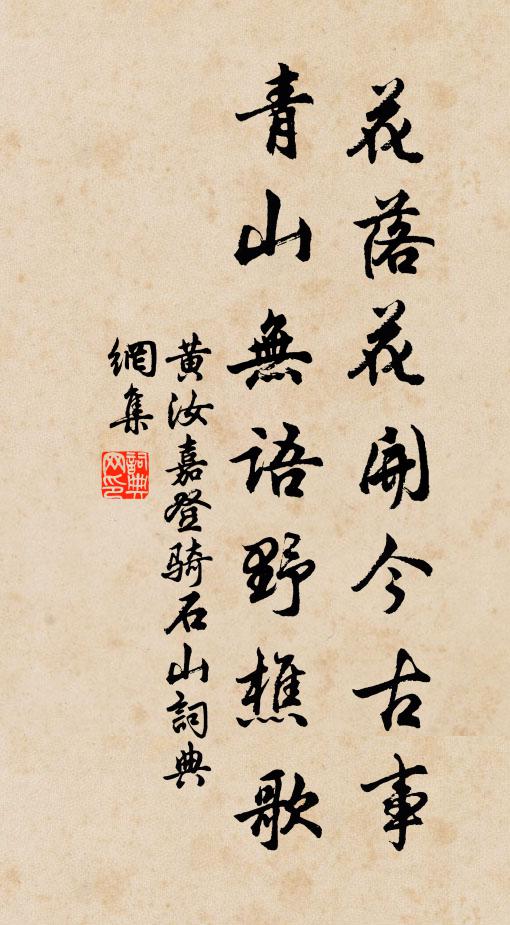 花落花開今古事
青山無語野樵歌
黄汝嘉登骑石山詞典
網集
詞典
网印